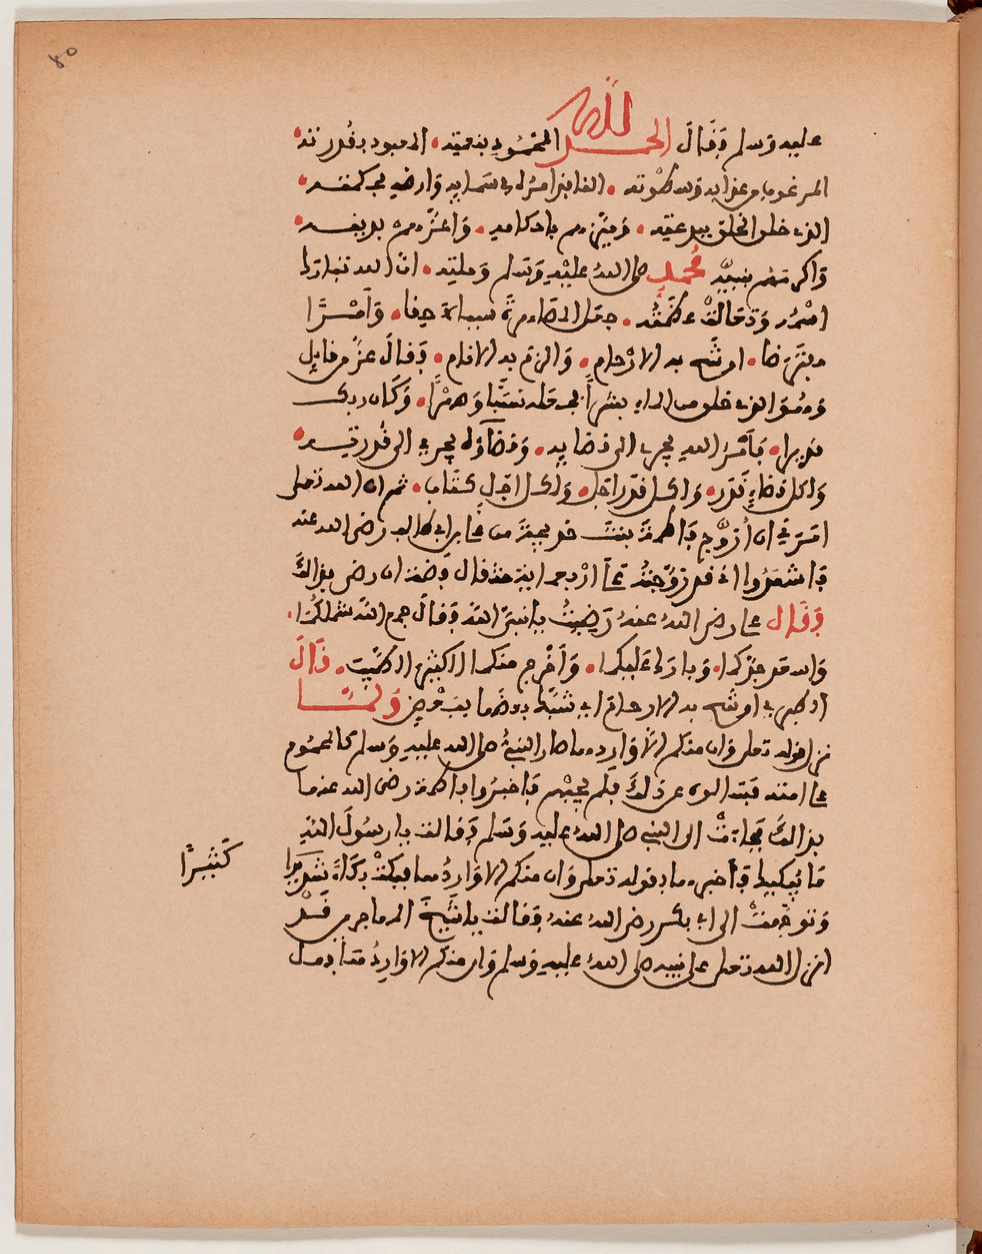 ٤٥
عليه وسلم فقال الحمد لله المحمود بنعمته• المعبود بقدرته•
المرغوب من عذابه وسطوته• النافذ امره في سمايه وارضه بحكمته•
الذي خلق الخلق بقدرته• وميّزهم باحكامه• واعزّهم بدينه•
واكرمهم بنبيّه محمد صلى الله عليه وسلم وملته• ان الله تبارك
اسمه وتعالت عظمته• جعل المصاهرة سببا لاحقا• وأمْرًا
مفترضا• اوشج به الارحام• والزم به الانام• فقال عز من قايل
وهو الذي خلق من الماء بشرا فجعله نسبا وصهرًا• وكان ربك
قديرا• فأمر الله يجري الى قضايه• وقضاؤه يجري الى قدرته•
ولكل قضاء قدر• ولكل قدر اجل• ولكل اجل كتاب• ثم ان الله تعلى
امرني ان أزوّج فاطمة بنت خديجة من علي بن ابي طالب رضي الله عنه
فاشهدوا اني قد زوّجته على اربعماية مثقال فضة ان رضي بذالك
فقال علي رضي الله عنه رضيت يا نبيّ الله فقال جمع الله شملكما•
واسعد جدّكما• وبارك عليكما• وأخرج منكما الكثير الطيب• قال
الطبري اوشج به الارحام اي شبّك بعضها ببعض ولمّا
نزل قوله تعلى وان منكم إلا واردها صار النبيّ صلى الله عليه وسلم
على امته فسالوه عن ذلك فلم يجبهم فاخبروا فاطمة رضي الله عنها
بذالك فجاءت الى النبي صلى الله عليه وسلم فقالت يا رسول الله
ما يبكيك فأخبرها بقوله تعلى وان منكم إلا واردها فبكت بكاءً شديدا
كثيرًا
وتوجهت الى ابي بكر رضي الله عنه فقالت يا شيخ المهاجرين قد
انزل الله تعلى على نبيه صلى الله عليه وسلم وان منكم إلا واردها فهل